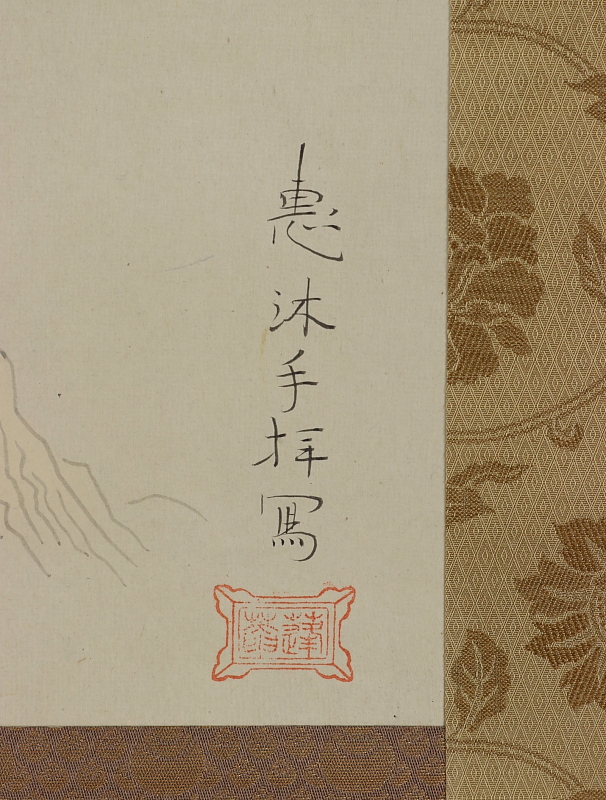 惠沐手拜寫